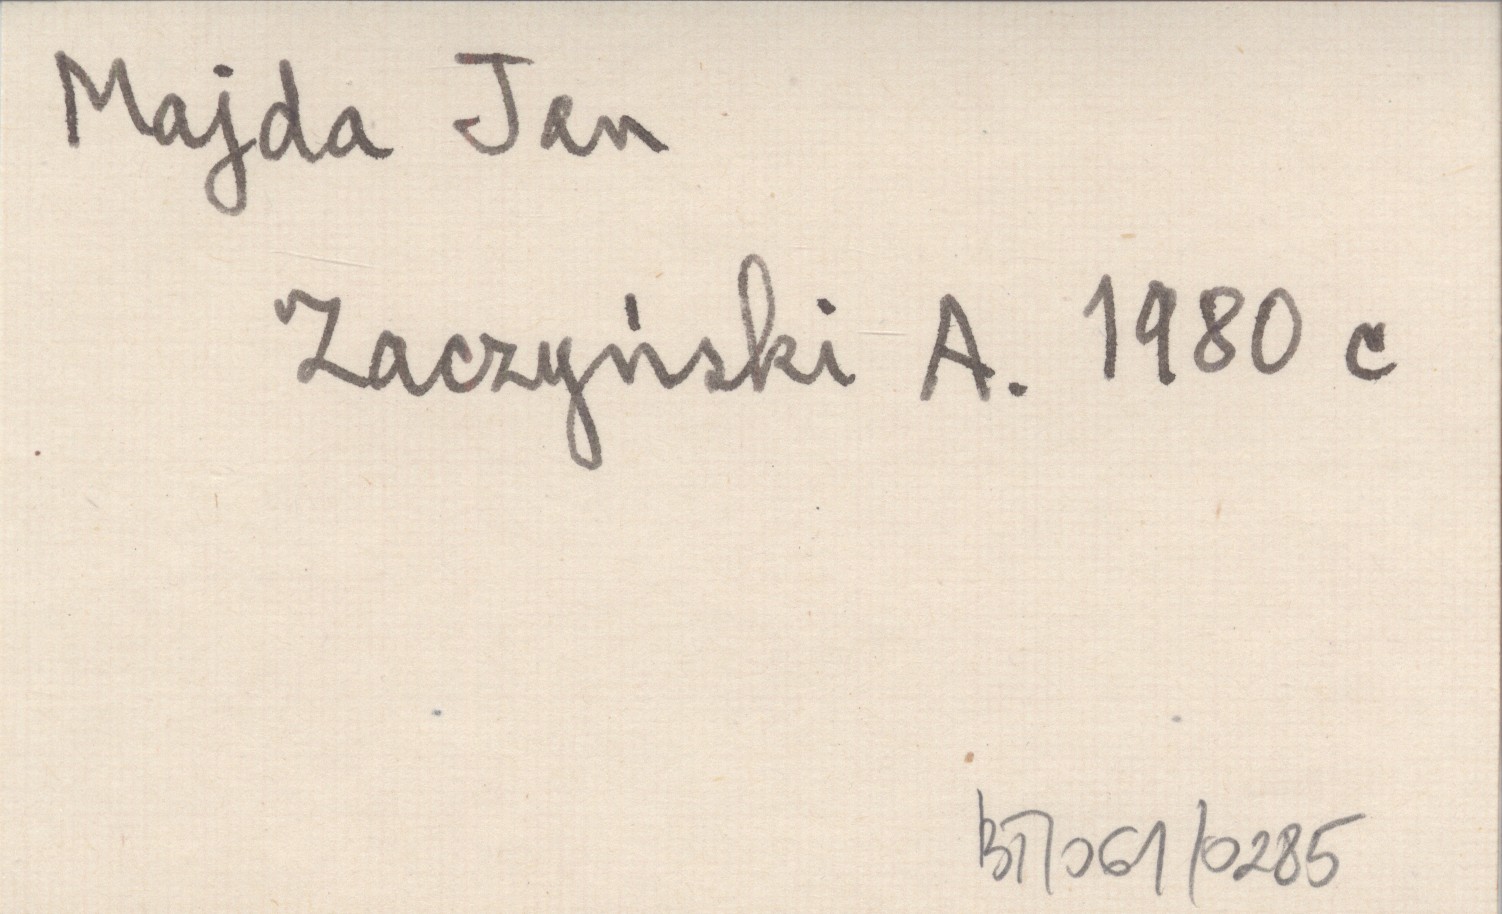 Majda Jan
Zaczyński A. 1980 c
BT/061/0285